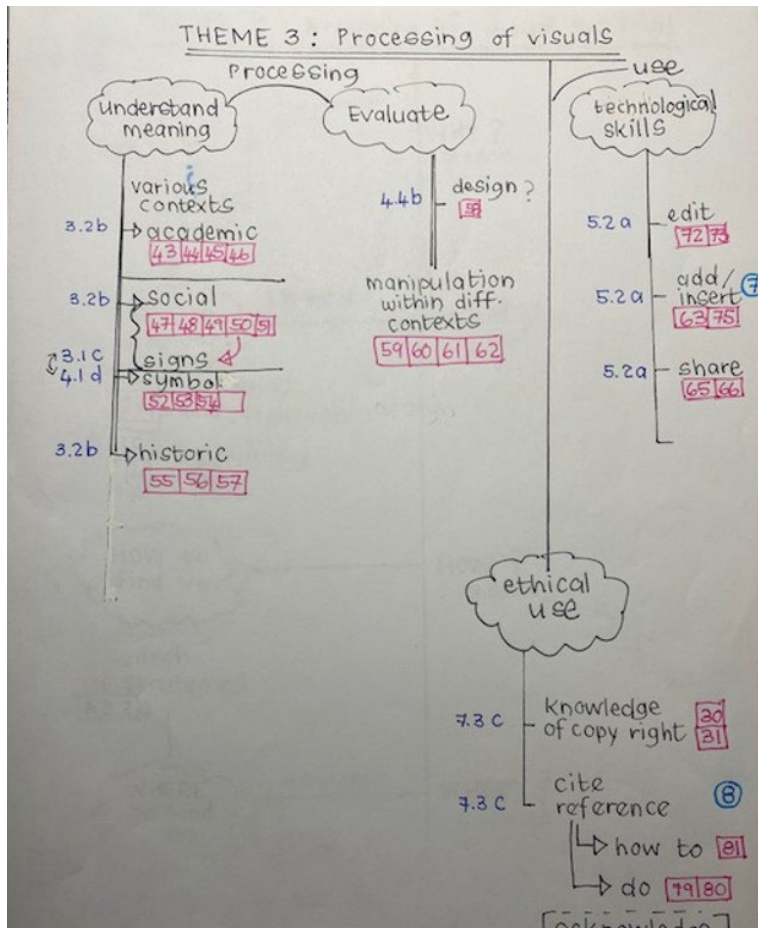 THEME 3: Processing of visuals
Processing
use
understand
meaning
Evaluate
technological
skills
various
contexts
3.2b academic
43 44 45 46
3.2b social
47 48 49 50 51
3.1c signs
4.1d symbol
52 53 54
3.2b historic
55 56 57
4.4b design?
58
manipulation
within diff.
contexts
59 60 61 62
5.2a edit
72 73
5.2a add/
insert 7
63 75
5.2a share
65 66
ethical
use
7.3c knowledge 30
of copy right 31
7.3c cite
reference 8
how to 81
do 79 80
acknowledge